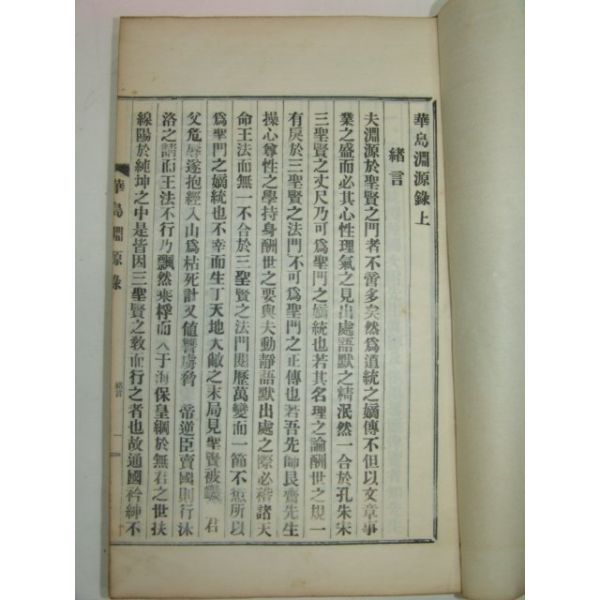 華島淵源錄上
緒言
夫淵源於聖賢之門者不啻多矣然爲道統之嫡傳不但以文章事
業之盛而必其心性理氣之見出處語默之精泯然一合於孔朱宋
三聖賢之丈尺乃可爲聖門之嫡統也若其名理之論酬世之規一
有戾於三聖賢之法門不可爲聖門之正傳也若吾先師艮齋先生
操心尊性之學持身酬世之要與夫動靜語默出處之際必稽諸天
命王法而無一不合於三聖賢之法門閱歷萬變而一節不愆所以
爲聖門之嫡統也不幸而生丁天地大敝之末局見聖賢被 君
父危辱遂抱經入山爲枯死計又値讐虜脅 帝逆臣賣國則行沐
洛之請而王法不行乃飄然乘桴而入于海保皇綱於無君之世扶
線陽於純坤之中是皆因三聖賢之敎而行之者也故通國衿紳不
華島淵源錄
緒言
一